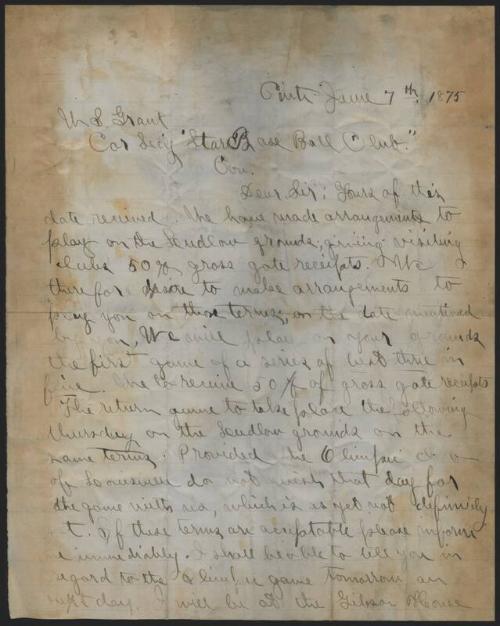 Cinti June 7th 1875
U S Grant
Cor Secy "Star Base Ball Club."
Cov.
Dear Sir; Yours of this
date received. We have made arrangements to
play on the Ludlow grounds, giving visiting
clubs 50% gross gate receipts. We
therefor desire to make arrangements to
play you on those terms, on the date mentioned
by you, We will play on your grounds
the first game of a series of best three in
five. We to receive 50% of gross gate receipts
The return game to take place the following
thursday on the Ludlow grounds on the
same terms. Provided the Olimpic
of Louisville do not that day for
the game with us, which is as yet not definitely
t. If these terms are acceptable please inform
e immediately. I shall be able to tell you in
egard to the Olimpic game tomorrow or
next day. I will be at the Gibson House